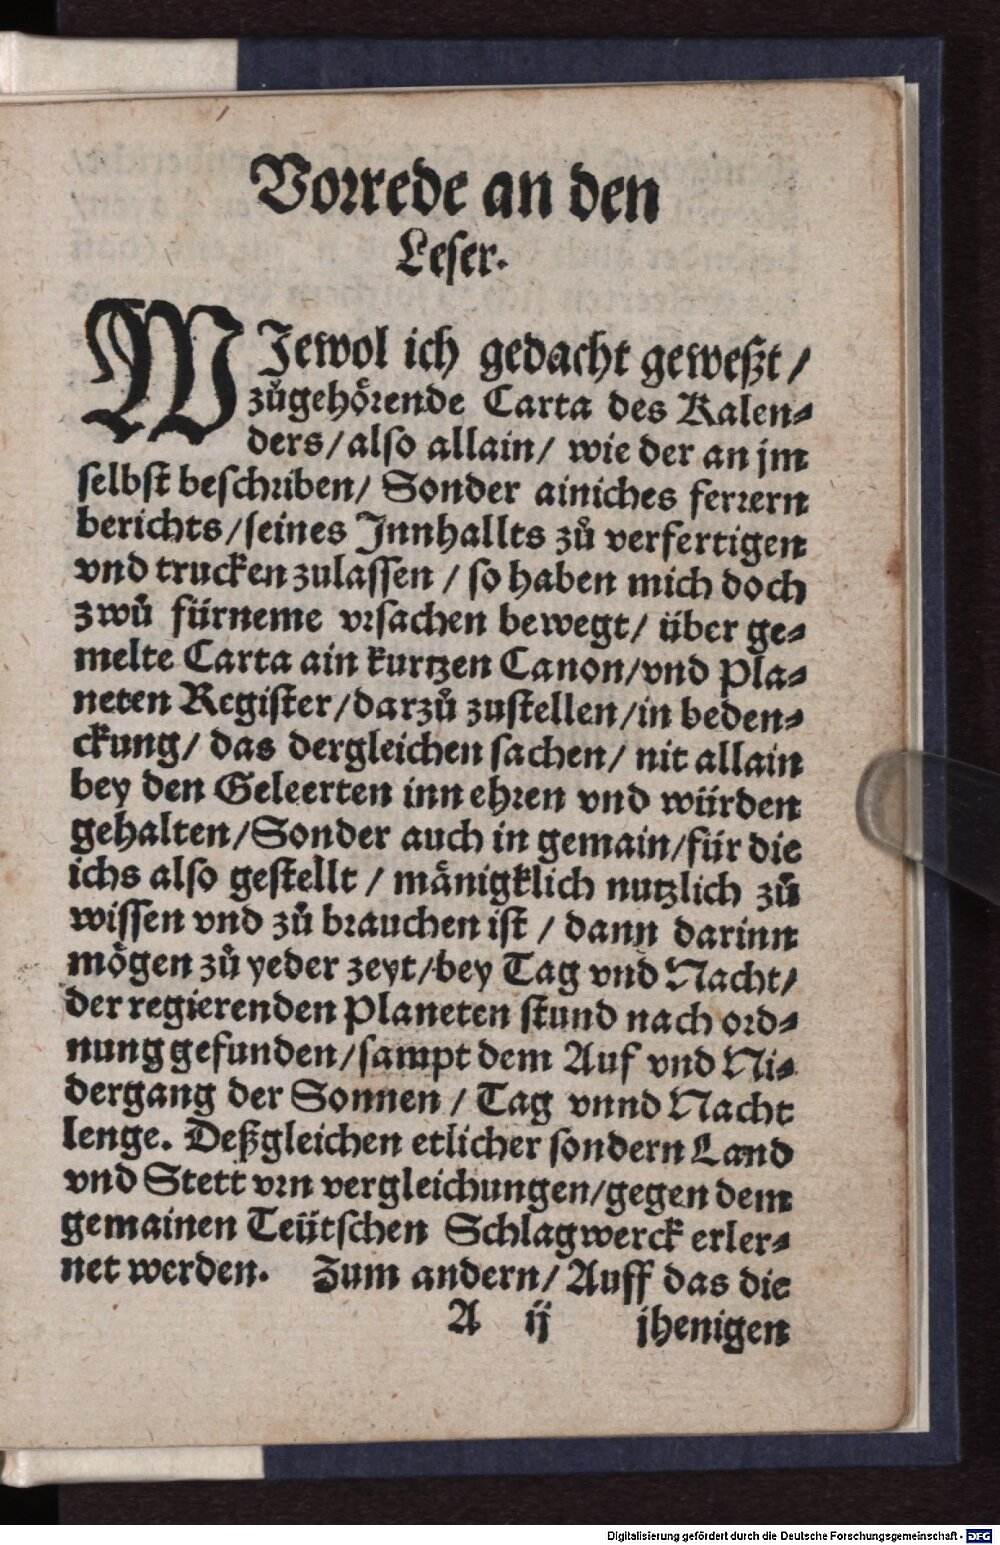 Vorrede an den
Leser.
WJewol ich gedacht geweßt /
zůgehörende Carta des Kalen⸗
ders / also allain / wie der an jm
selbst beschriben / Sonder ainiches ferrern
berichts / seines Innhallts zů verfertigen
vnd trucken zulassen / so haben mich doch
zwů fürneme vrsachen bewegt / über ge⸗
melte Carta ain kurtzen Canon / vnd Pla⸗
neten Register / darzů zustellen / in beden⸗
ckung / das dergleichen sachen / nit allain
bey den Geleerten inn ehren vnd würden
gehalten / Sonder auch in gemain / für die
ichs also gestellt / mänigklich nutzlich zů
wissen vnd zů brauchen ist / dann darinn
mögen zů yeder zeyt / bey Tag vnd Nacht /
der regierenden Planeten stund nach ord⸗
nung gefunden / sampt dem Auf vnd Ni⸗
dergang der Sonnen / Tag vnnd Nacht
lenge. Deßgleichen etlicher sondern Land
vnd Stett vrn vergleichungen / gegen dem
gemainen Teütschen Schlagwerck erler⸗
net werden. Zum andern / Auff das die
A ij jhenigen
Digitalisierung gefördert durch die Deutsche Forschungsgemeinschaft - DFG